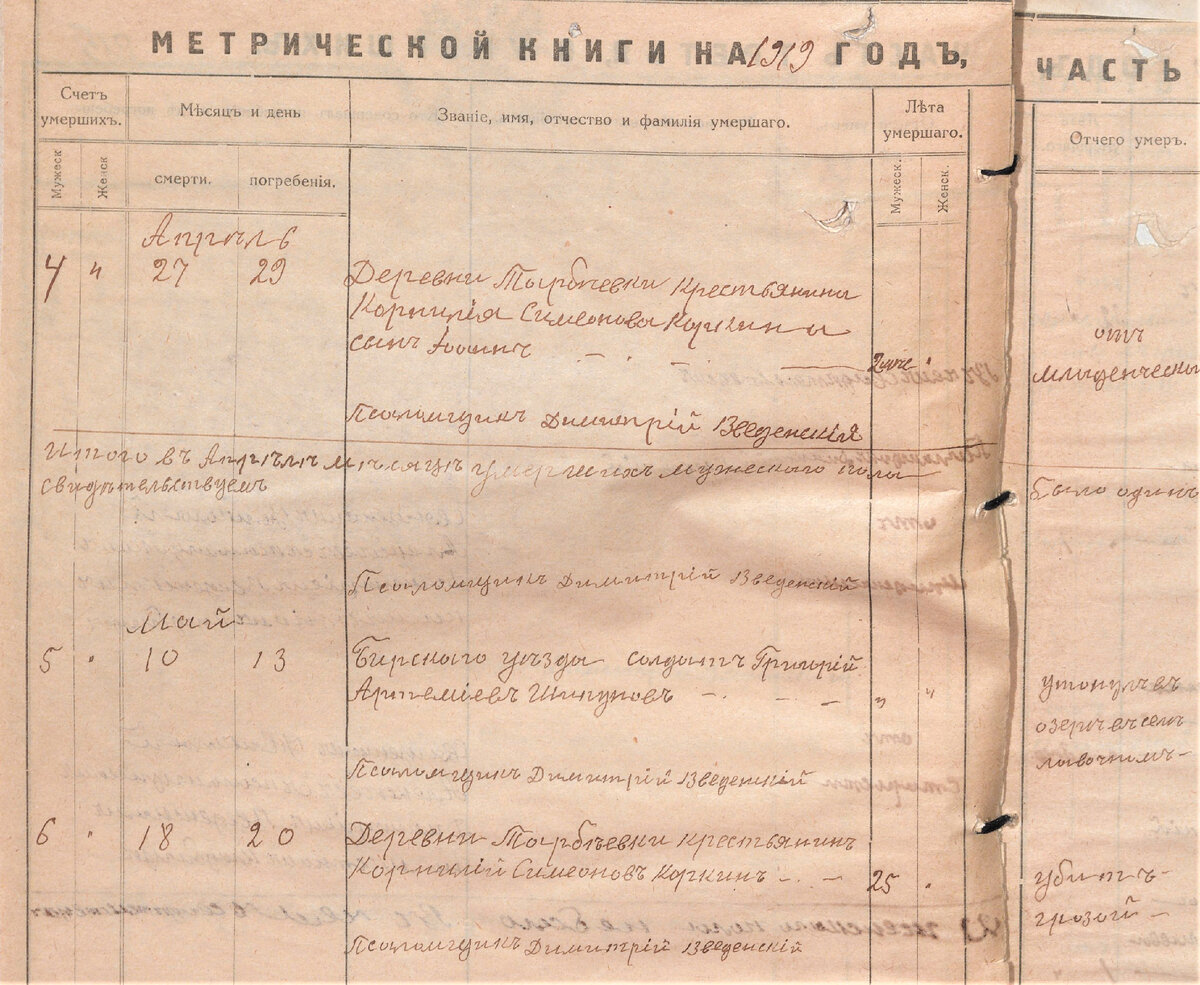 МЕТРИЧЕСКОЙ КНИГИ НА 1919 ГОДЪ,
ЧАСТЬ
Счетъ умершихъ.
Мѣсяцъ и день
Званіе, имя, отчество и фамилія умершаго.
Лѣта умершаго.
Отчего умеръ.
Мужеск
Женск
смерти.
погребенія.
Мужеск.
Женск.
Апрѣль
4 " 27 29 Деревни Тарбѣевки крестьянина
Корнилія Симеонова Коркина
сынъ Іоаннъ
отъ
младенческ
Псаломщикъ Димитрій Введенскій
Итого въ Апрѣлѣ мѣсяцѣ умершихъ мужескаго пола
было одинъ
свидѣтельствуемъ
Псаломщикъ Димитрій Введенскій
Май
5 " 10 13 Бирскаго уѣзда солдатъ Григорій
Артеміевъ Шипуновъ " "
утонулъ въ
озерѣ въ селѣ
Псаломщикъ Димитрій Введенскій
6 " 18 20 Деревни Тарбѣевки крестьянинъ
Корнилій Симеоновъ Коркинъ 25 "
убитъ
грозой
Псаломщикъ Димитрій Введенскій